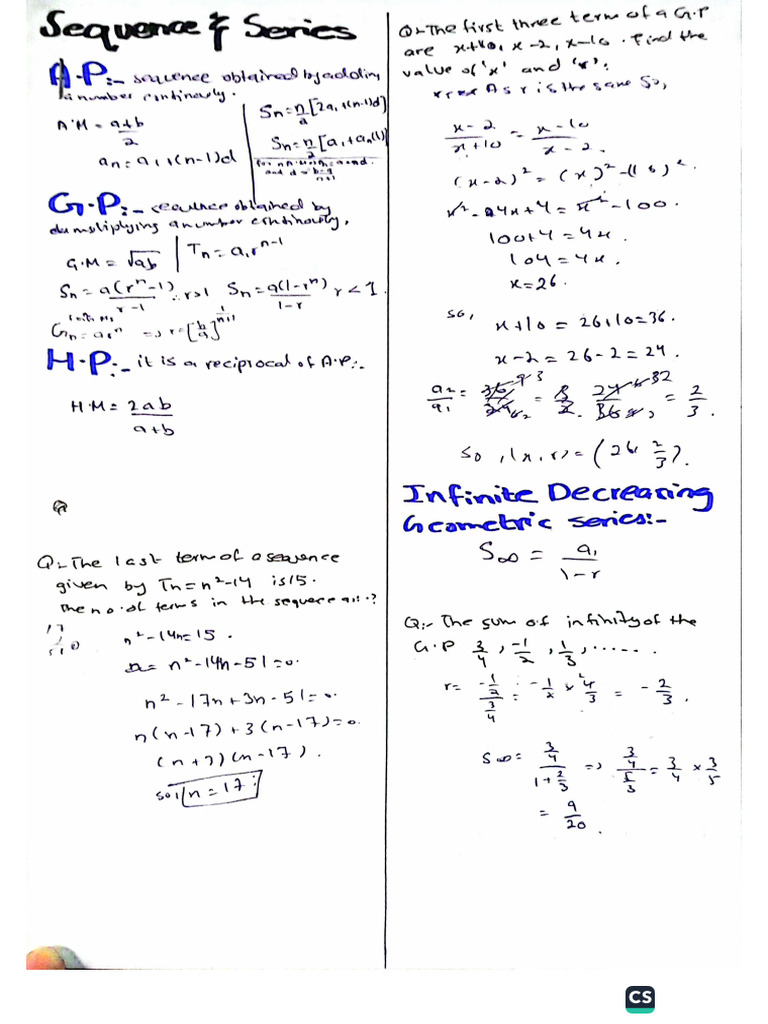 Sequence & Series
A.P:- sequence obtained by adding
a number continously.
A.M = a+b/2
an = a1+(n-1)d
Sn = n/2 [2a1+(n-1)d]
Sn = n/2 [a1+an(l)]
and d = b-a/n+1
G.P:- sequence obtained by
multiplying a number continously.
G.M = √ab | Tn = a1r^n-1
Sn = a(r^n-1)/r-1 ∴ r>1 Sn = a(1-r^n)/1-r r<1
Gn = a1r^n => r = [b/a]^1/n+1
H.P:- it is a reciprocal of A.P:-
H.M = 2ab/a+b
Q:- The last term of a sequence
given by Tn = n²-14 is 15.
The no. of terms in the sequence are?
n²-14n=15.
n²-14n-51=0.
n²-17n+3n-51=0.
n(n-17)+3(n-17)=0.
(n+3)(n-17).
so, n=17.
Q:- The first three term of a G.P
are x+10, x-2, x-10. Find the
value of 'x' and 'r'.
As r is the same so,
x-2/x+10 = x-10/x-2.
(x-2)² = (x)²-(10)².
x²-4x+4 = x²-100.
100+4=4x.
104=4x.
x=26.
so, x+10 = 26+10=36.
x-2 = 26-2 = 24.
a2/a1 = 24/36 = 2/3.
So, (x,r) = (26, 2/3).
Infinite Decreasing
Geometric series:-
S∞ = a1/1-r
Q:- The sum of infinity of the
G.P 3/4, -1/2, 1/3, ......
r = -1/2/3/4 = -1/2 × 4/3 = -2/3.
S∞ = 3/4/1+2/3 => 3/4/5/3 = 3/4 × 3/5
= 9/20.
CS